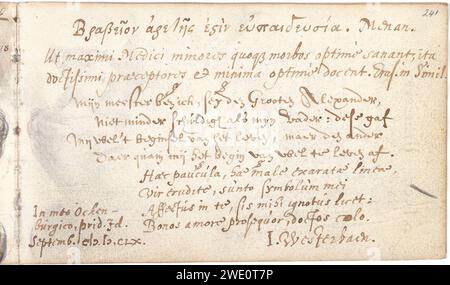 241
Βραβεῖον ἀρετῆς ἐςὶν εὐπαιδευσία. Menan.
Ut maximi Medici minores quoque morbos optime sanant, ita
doctissimi præceptores et minima optime docent. Eras. in Simil.
Mijn meester ben ick, seÿ den Grooten Alexander,
niet minder schuldigh als mijn Vader: dese gaf
Mij wel't beginsel van het leven, maer des ander
Daer quam mij het begin van wel te leven af.
Hæc paucula, hæ male exaratæ lineæ,
Vir erudite, sunto symbolum mei
Affectus in te, sis mihi ignotus licet:
Bonos amore prosequor, doctos colo.
I. Westerbaen.
In meo Ocken-
burgico, prid. Id.
Septemb. CIƆ. IƆ. CLX.
alamy
Image ID: 2WE0T7P
www.alamy.com